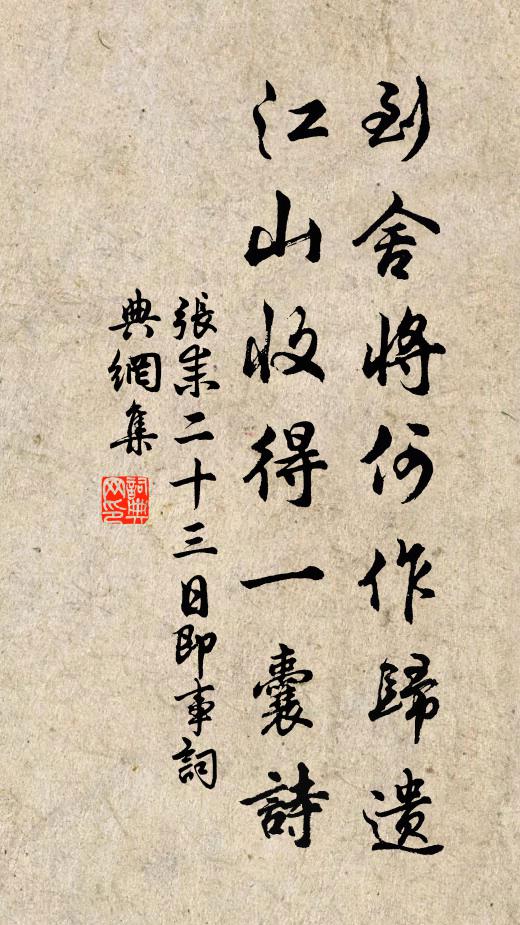 到舍將何作歸遗
江山收得一囊詩
張耒二十三日即事詞
典網集
詞典網印